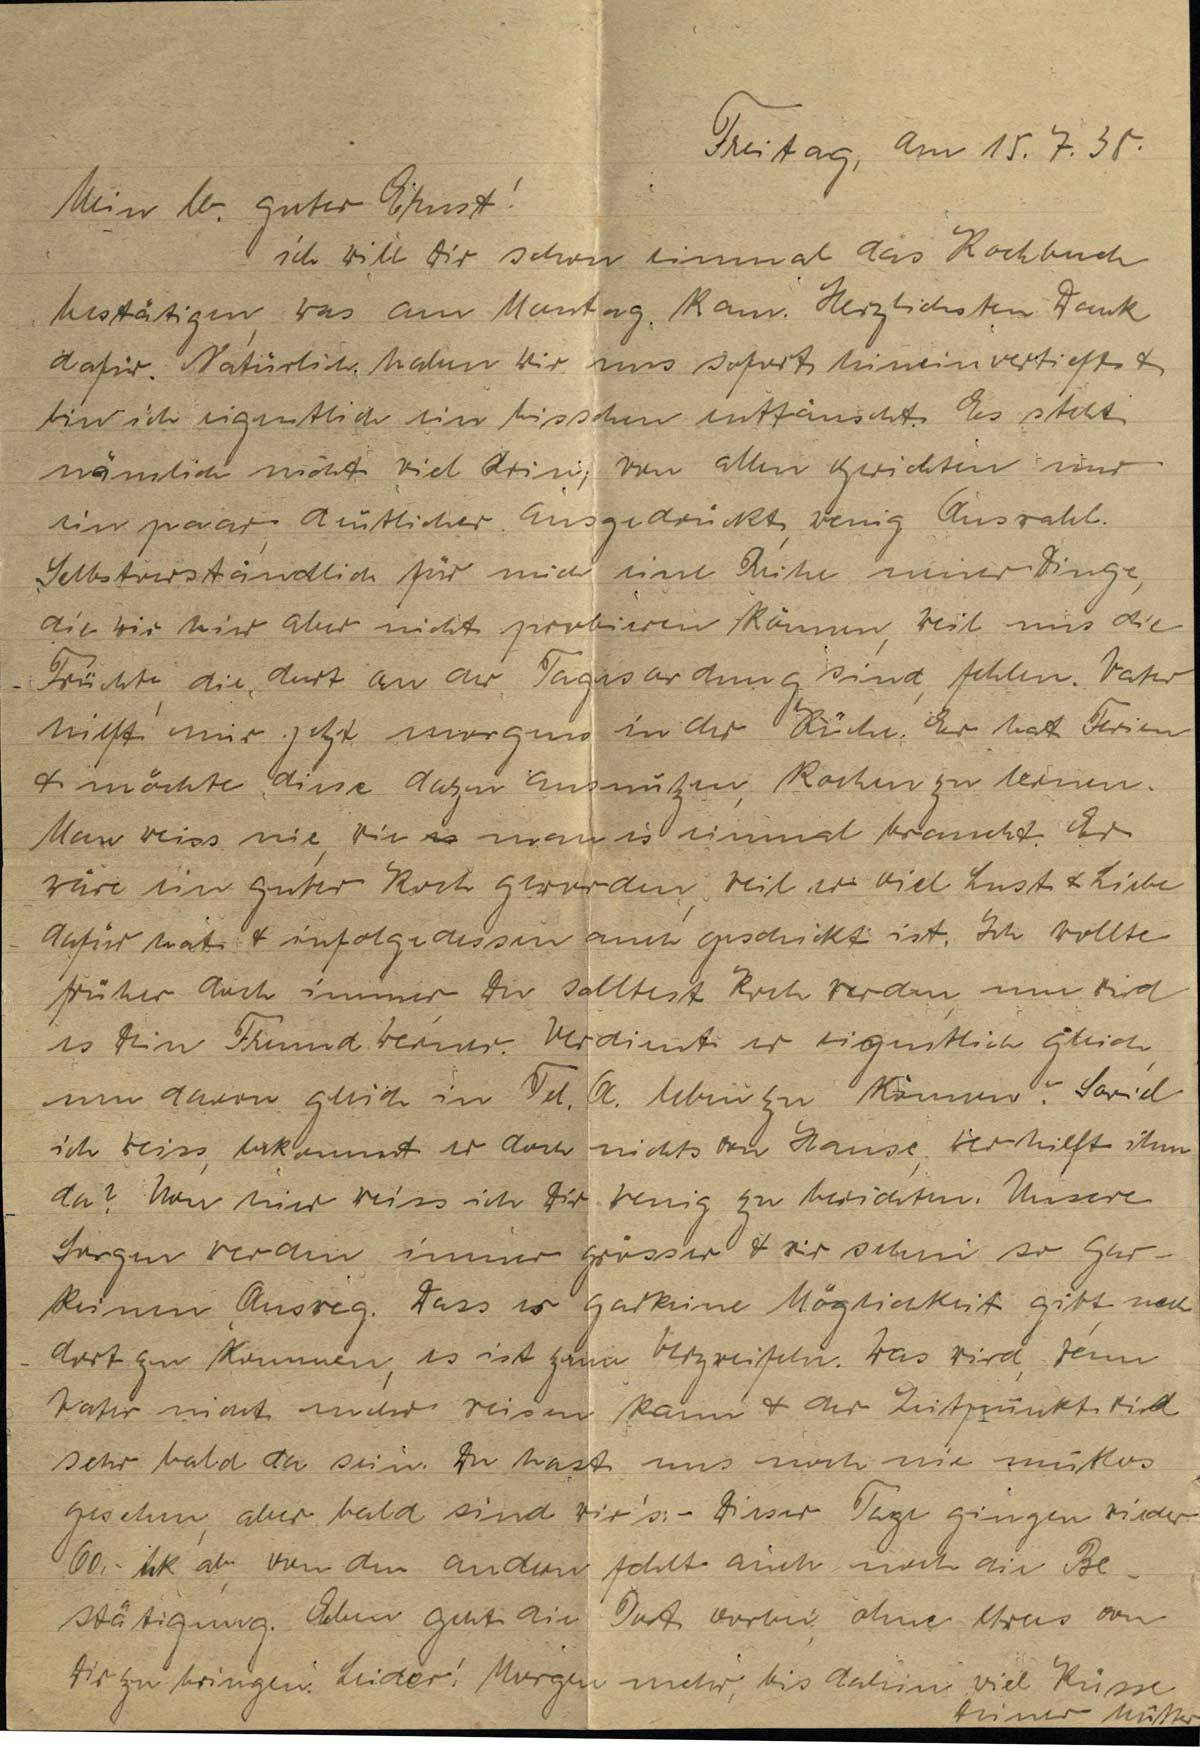 Freitag, am 15. 7. 38.
Mein lb. guter Ernst!
ich will Dir schon einmal das Kochbuch
bestätigen, was am Montag kam. Herzlichsten Dank
dafür. Natürlich haben wir uns sofort hineinvertieft &
bin ich eigentlich ein bisschen enttäuscht. Es steht
nämlich nicht viel drin, von allen Gerichten nur
ein paar, deutlicher ausgedrückt, wenig Auswahl.
Selbstverständlich für mich eine Reihe neuer Dinge,
die wir hier aber nicht probieren können, weil uns die
Früchte, die dort an der Tagesordnung sind, fehlen. Vater
hilft mir jetzt morgens in der Küche. Er hat Ferien
& möchte diese dazu ausnützen, kochen zu lernen.
Man weiss nie, wie man es einmal braucht. Er
wäre ein guter Koch geworden, weil er viel Lust & Liebe
dafür hat & infolgedessen auch geschickt ist. Ich wollte
früher doch immer Du solltest Koch werden, nun wird
es Dein Freund Werner. Verdient er eigentlich gleich,
um davon gleich in Tel. A. leben zu können? Soviel
ich weiss, bekommt er doch nichts von Hause, wer hilft ihm
da? Von hier weiss ich Dir wenig zu berichten. Unsere
Sorgen werden immer grösser & wir sehen so gar-
keinen Ausweg. Dass es garkeine Möglichkeit gibt, nach
dort zu kommen, es ist zum Verzweifeln. Was wird, wenn
Vater nicht mehr reisen kann & der Zeitpunkt wird
sehr bald da sein. Du hast uns noch nie mutlos
gesehen, aber bald sind wir's.- Dieser Tage gingen wieder
60.- Mk ab, von den andern fehlt auch noch die Be-
stätigung. Eben geht die Post vorbei, ohne etwas von
Dir zu bringen. Leider! Morgen mehr, bis dahin viel Küsse
Deiner Mutter